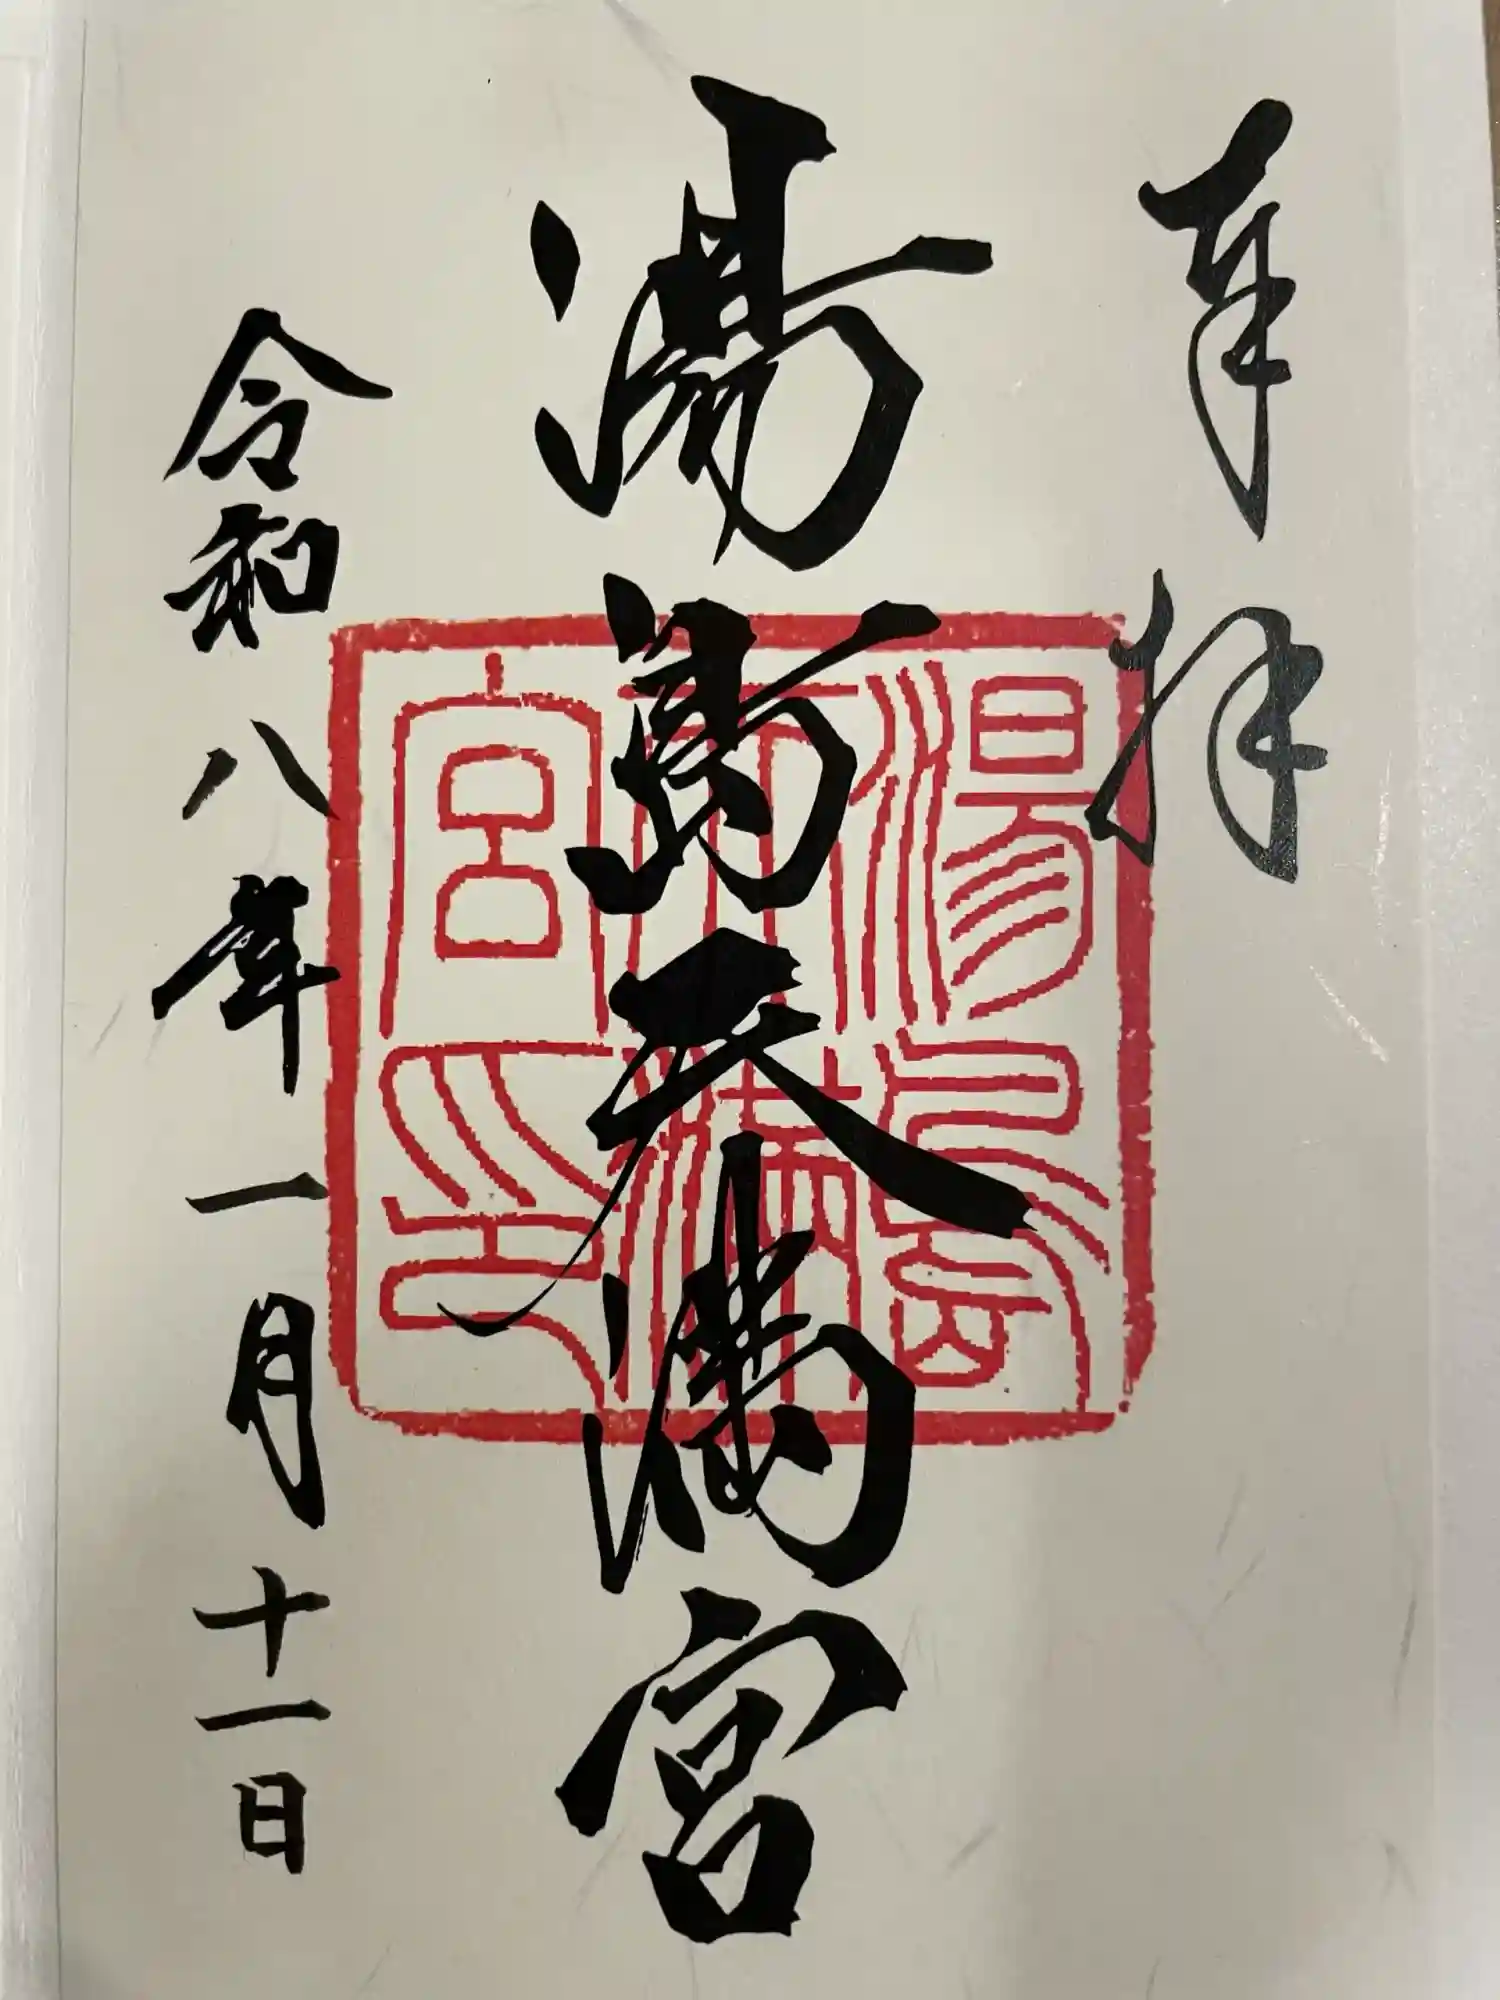 奉拝
湯島天満宮
令和八年一月十一日
湯島
天満
宮印